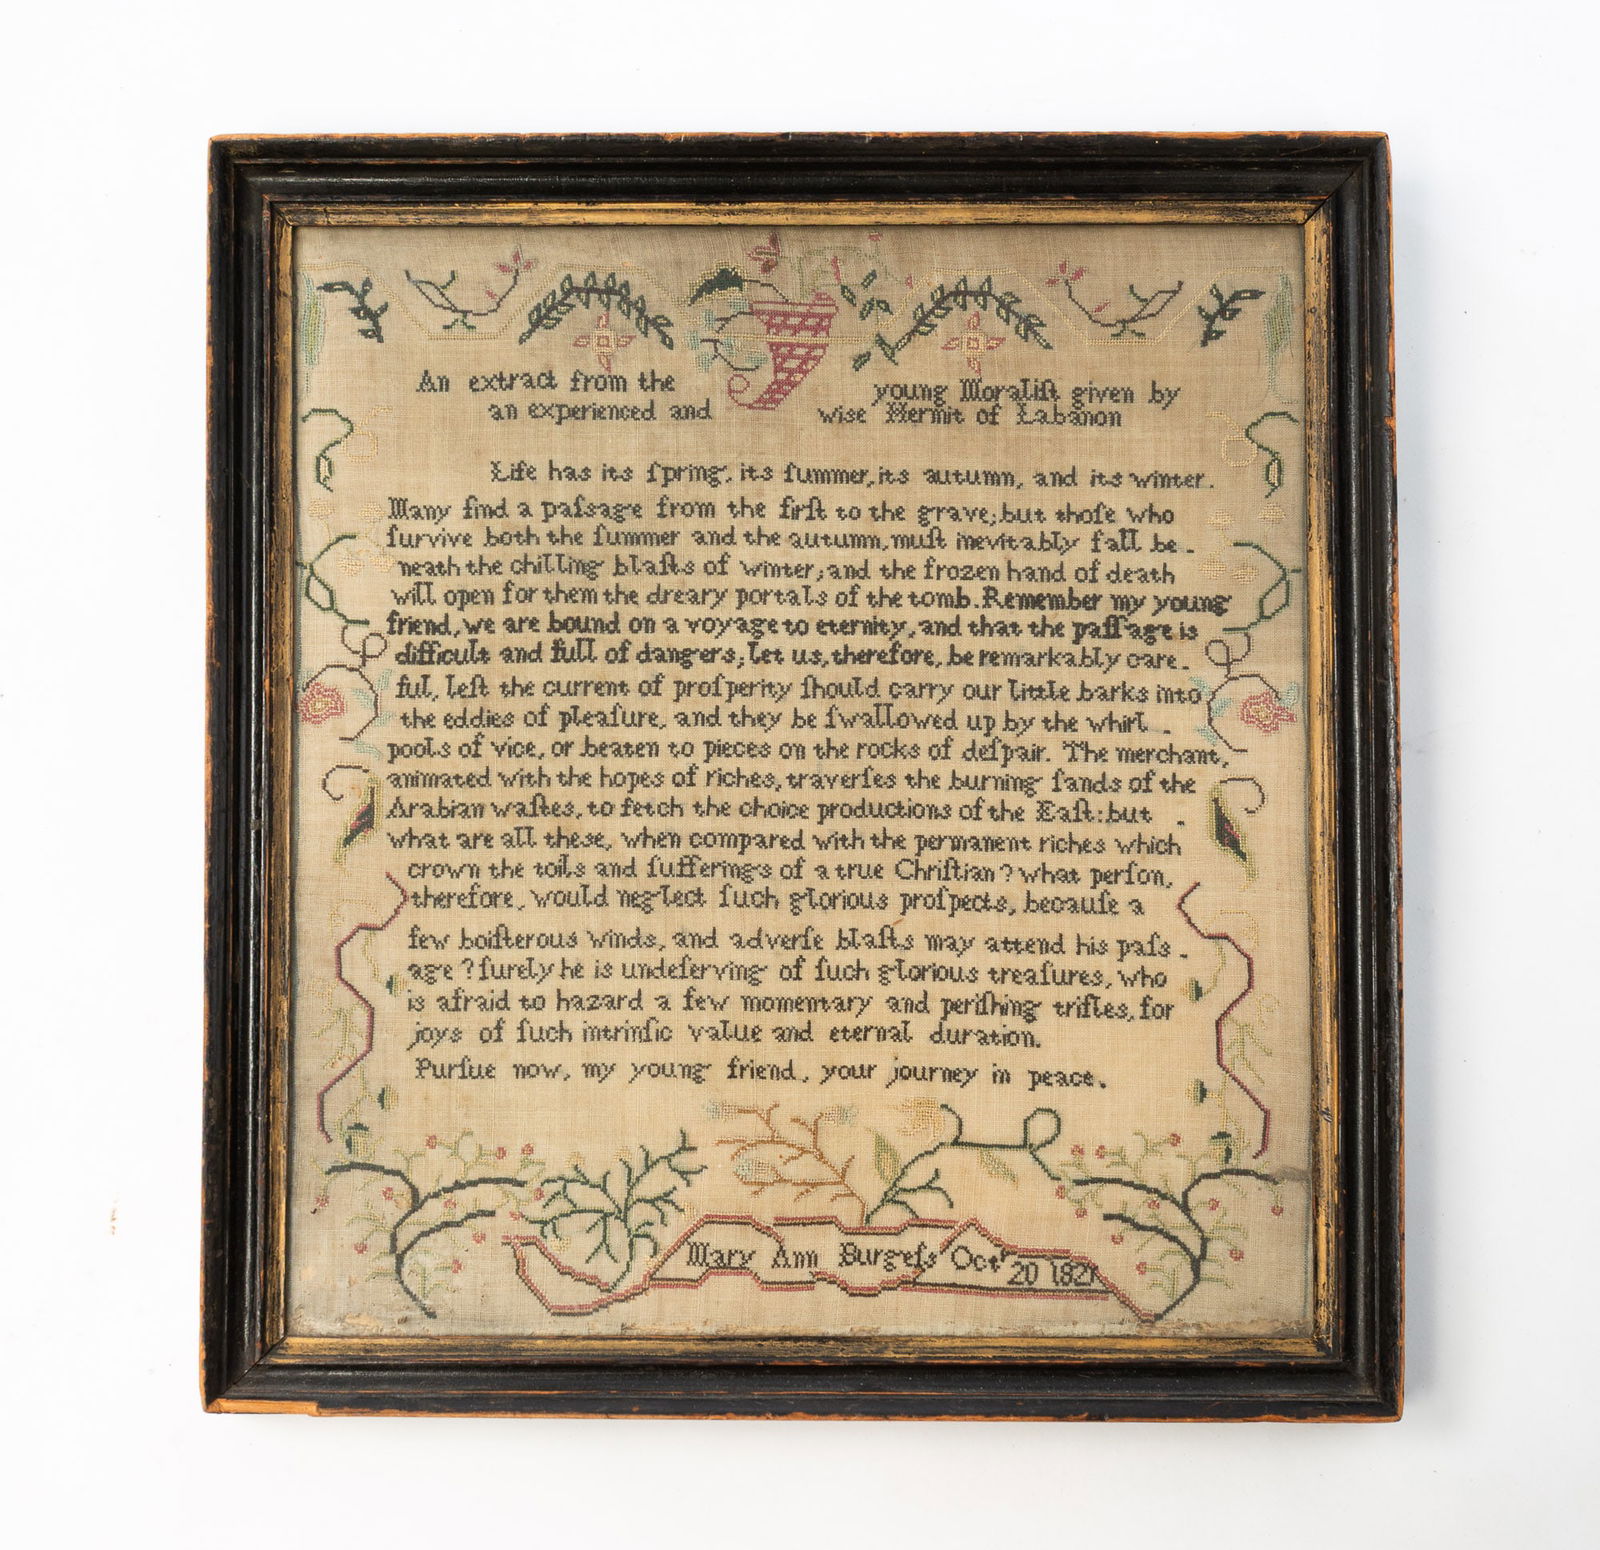 An extract from the young Moraliſt given by
an experienced and wise Hermit of Labanon
Life has its ſpring, its ſummer, its autumn, and its winter.
Many find a paſsage from the firſt to the grave; but thoſe who
ſurvive both the ſummer and the autumn, muſt inevitably fall be-
neath the chilling blaſts of winter; and the frozen hand of death
will open for them the dreary portals of the tomb. Remember my young
friend, we are bound on a voyage to eternity, and that the paſſage is
difficult and full of dangers; let us, therefore, be remarkably care-
ful, leſt the current of proſperity ſhould carry our little barks into
the eddies of pleaſure, and they be ſwallowed up by the whirl-
pools of vice, or beaten to pieces on the rocks of deſpair. The merchant,
animated with the hopes of riches, traverſes the burning ſands of the
Arabian waſtes, to fetch the choice productions of the Eaſt: but -
what are all these, when compared with the permanent riches which
crown the toils and ſufferings of a true Chriſtian? what perſon,
therefore, would neglect ſuch glorious proſpects, becauſe a
few boiſterous winds, and adverſe blaſts may attend his paſs-
age? ſurely he is undeſerving of ſuch glorious treaſures, who
is afraid to hazard a few momentary and periſhing trifles, for
joys of ſuch intrinſic value and eternal duration.
Purſue now, my young friend, your journey in peace.
Mary Ann Burgeſs Octr 20 1821